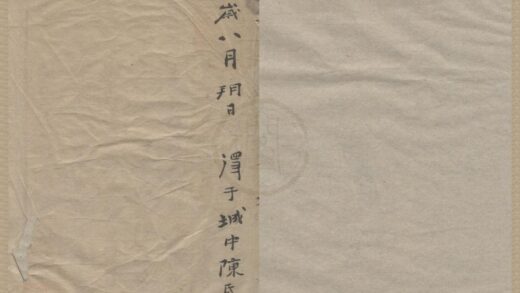 歲八月朔日 得于城中陳氏